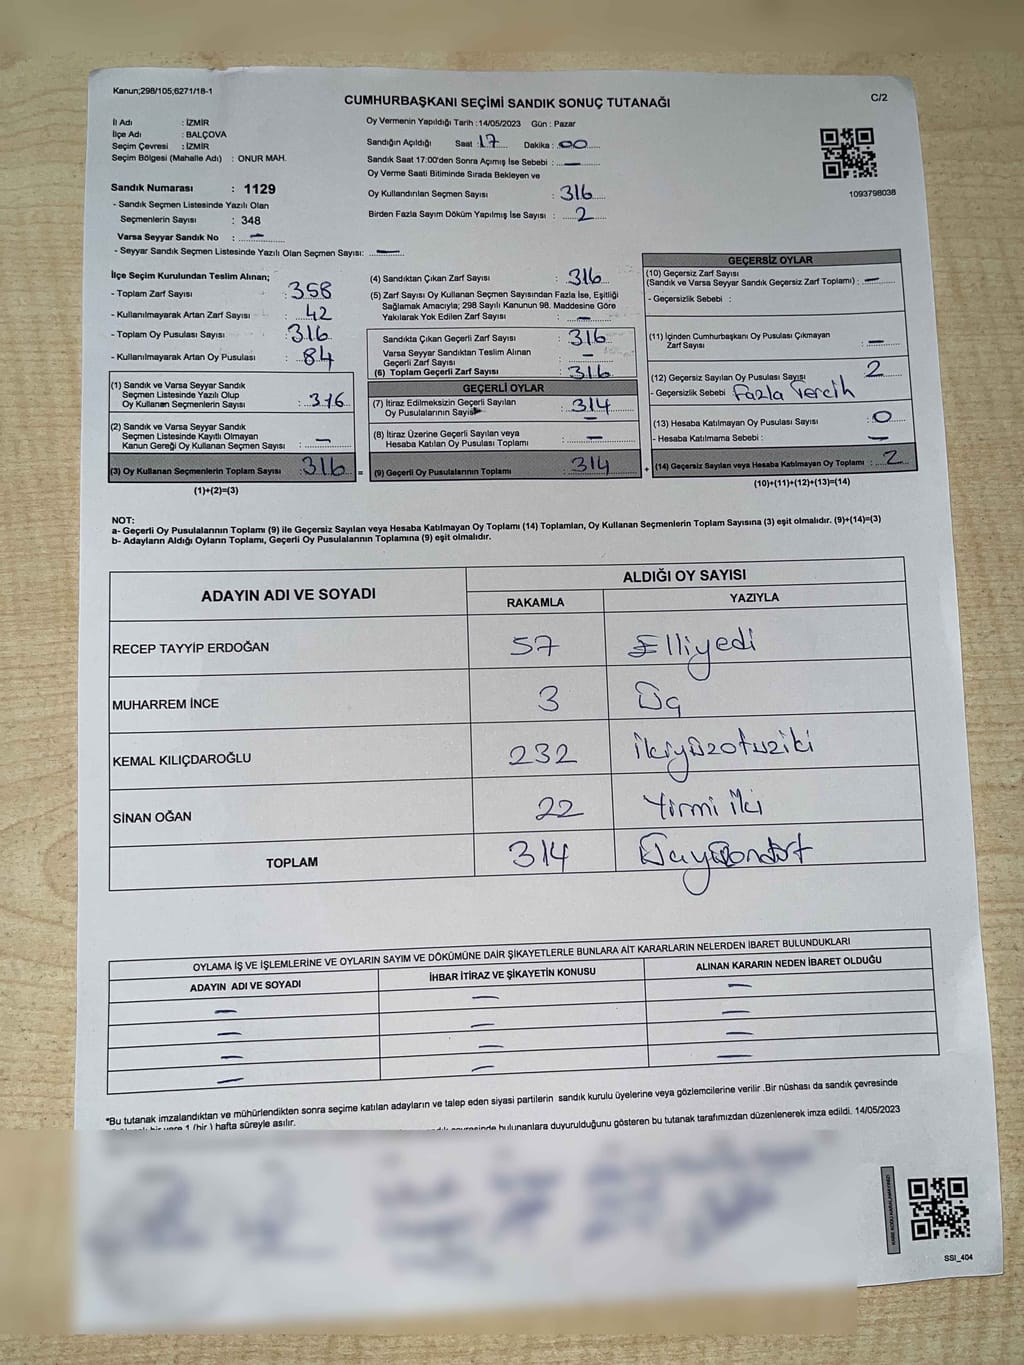 Kanun;298/105;6271/18-1
CUMHURBAŞKANI SEÇİMİ SANDIK SONUÇ TUTANAĞI
C/2
İl Adı : İZMİR
İlçe Adı : BALÇOVA
Seçim Çevresi : İZMİR
Seçim Bölgesi (Mahalle Adı) : ONUR MAH.
Sandık Numarası : 1129
- Sandık Seçmen Listesinde Yazılı Olan
Seçmenlerin Sayısı : 348
Varsa Seyyar Sandık No : —
- Seyyar Sandık Seçmen Listesinde Yazılı Olan Seçmen Sayısı: —
Oy Vermenin Yapıldığı Tarih :14/05/2023 Gün : Pazar
Sandığın Açıldığı Saat : 17 Dakika : 00
Sandık Saat 17:00'den Sonra Açımış İse Sebebi : —
Oy Verme Saati Bitiminde Sırada Bekleyen ve
Oy Kullandırılan Seçmen Sayısı : 316
Birden Fazla Sayım Döküm Yapılmış İse Sayısı : 2
1093798038
İlçe Seçim Kurulundan Teslim Alınan;
- Toplam Zarf Sayısı : 358
- Kullanılmayarak Artan Zarf Sayısı : 42
- Toplam Oy Pusulası Sayısı : 316
- Kullanılmayarak Artan Oy Pusulası : 84
(1) Sandık ve Varsa Seyyar Sandık
Seçmen Listesinde Yazılı Olup
Oy Kullanan Seçmenlerin Sayısı : 316
(2) Sandık ve Varsa Seyyar Sandık
Seçmen Listesinde Kayıtlı Olmayan
Kanun Gereği Oy Kullanan Seçmen Sayısı : —
(3) Oy Kullanan Seçmenlerin Toplam Sayısı : 316 =
(1)+(2)=(3)
(4) Sandıktan Çıkan Zarf Sayısı : 316
(5) Zarf Sayısı Oy Kullanan Seçmen Sayısından Fazla İse, Eşitliği
Sağlamak Amacıyla; 298 Sayılı Kanunun 98. Maddesine Göre
Yakılarak Yok Edilen Zarf Sayısı : —
Sandıkta Çıkan Geçerli Zarf Sayısı : 316
Varsa Seyyar Sandıktan Teslim Alınan
Geçerli Zarf Sayısı : —
(6) Toplam Geçerli Zarf Sayısı : 316
GEÇERLİ OYLAR
(7) İtiraz Edilmeksizin Geçerli Sayılan
Oy Pusulalarının Sayısı : 314
(8) İtiraz Üzerine Geçerli Sayılan veya
Hesaba Katılan Oy Pusulası Toplamı : —
(9) Geçerli Oy Pusulalarının Toplamı : 314 +
GEÇERSİZ OYLAR
(10) Geçersiz Zarf Sayısı
(Sandık ve Varsa Seyyar Sandık Geçersiz Zarf Toplamı) : —
- Geçersizlik Sebebi :
(11) İçinden Cumhurbaşkanı Oy Pusulası Çıkmayan
Zarf Sayısı : —
(12) Geçersiz Sayılan Oy Pusulası Sayısı : 2
- Geçersizlik Sebebi Fazla Tercih
(13) Hesaba Katılmayan Oy Pusulası Sayısı : 0
- Hesaba Katılmama Sebebi : —
(14) Geçersiz Sayılan veya Hesaba Katılmayan Oy Toplamı : 2
(10)+(11)+(12)+(13)=(14)
NOT:
a- Geçerli Oy Pusulalarının Toplamı (9) ile Geçersiz Sayılan veya Hesaba Katılmayan Oy Toplamı (14) Toplamları, Oy Kullanan Seçmenlerin Toplam Sayısına (3) eşit olmalıdır. (9)+(14)=(3)
b- Adayların Aldığı Oyların Toplamı, Geçerli Oy Pusulalarının Toplamına (9) eşit olmalıdır.
ADAYIN ADI VE SOYADI
ALDIĞI OY SAYISI
RAKAMLA YAZIYLA
RECEP TAYYİP ERDOĞAN 57 Elliyedi
MUHARREM İNCE 3 Üç
KEMAL KILIÇDAROĞLU 232 ikiyüzotuziki
SİNAN OĞAN 22 Yirmi iki
TOPLAM 314 Üçyüzondört
OYLAMA İŞ VE İŞLEMLERİNE VE OYLARIN SAYIM VE DÖKÜMÜNE DAİR ŞİKAYETLERLE BUNLARA AİT KARARLARIN NELERDEN İBARET BULUNDUKLARI
ADAYIN ADI VE SOYADI İHBAR İTİRAZ VE ŞİKAYETİN KONUSU ALINAN KARARIN NEDEN İBARET OLDUĞU
— — —
— — —
— — —
— — —
*Bu tutanak imzalandıktan ve mühürlendikten sonra seçime katılan adayların ve talep eden siyasi partilerin sandık kurulu üyelerine veya gözlemcilerine verilir .Bir nüshası da sandık çevresinde
bir yere 1 (bir ) hafta süreyle asılır.
bulunanlara duyurulduğunu gösteren bu tutanak tarafımızdan düzenlenerek imza edildi. 14/05/2023
SSI_404